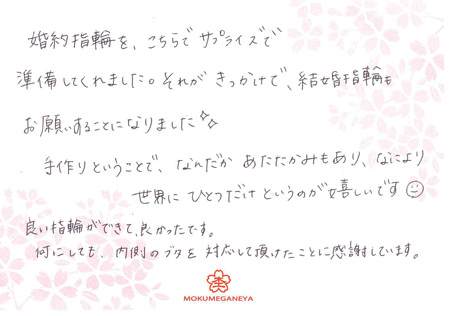 婚約指輪を、こちらで サプライズで
準備してくれました。それが きっかけで、結婚指輪も
お願いすることになりました✨
手作りということで、なんだか あたたかみもあり、なにより
世界に ひとつだけ というのが 嬉しいです☺
良い指輪ができて、良かったです。
何にしても、内側のブタを 対応して頂けたことに感謝しています。
MOKUMEGANEYA